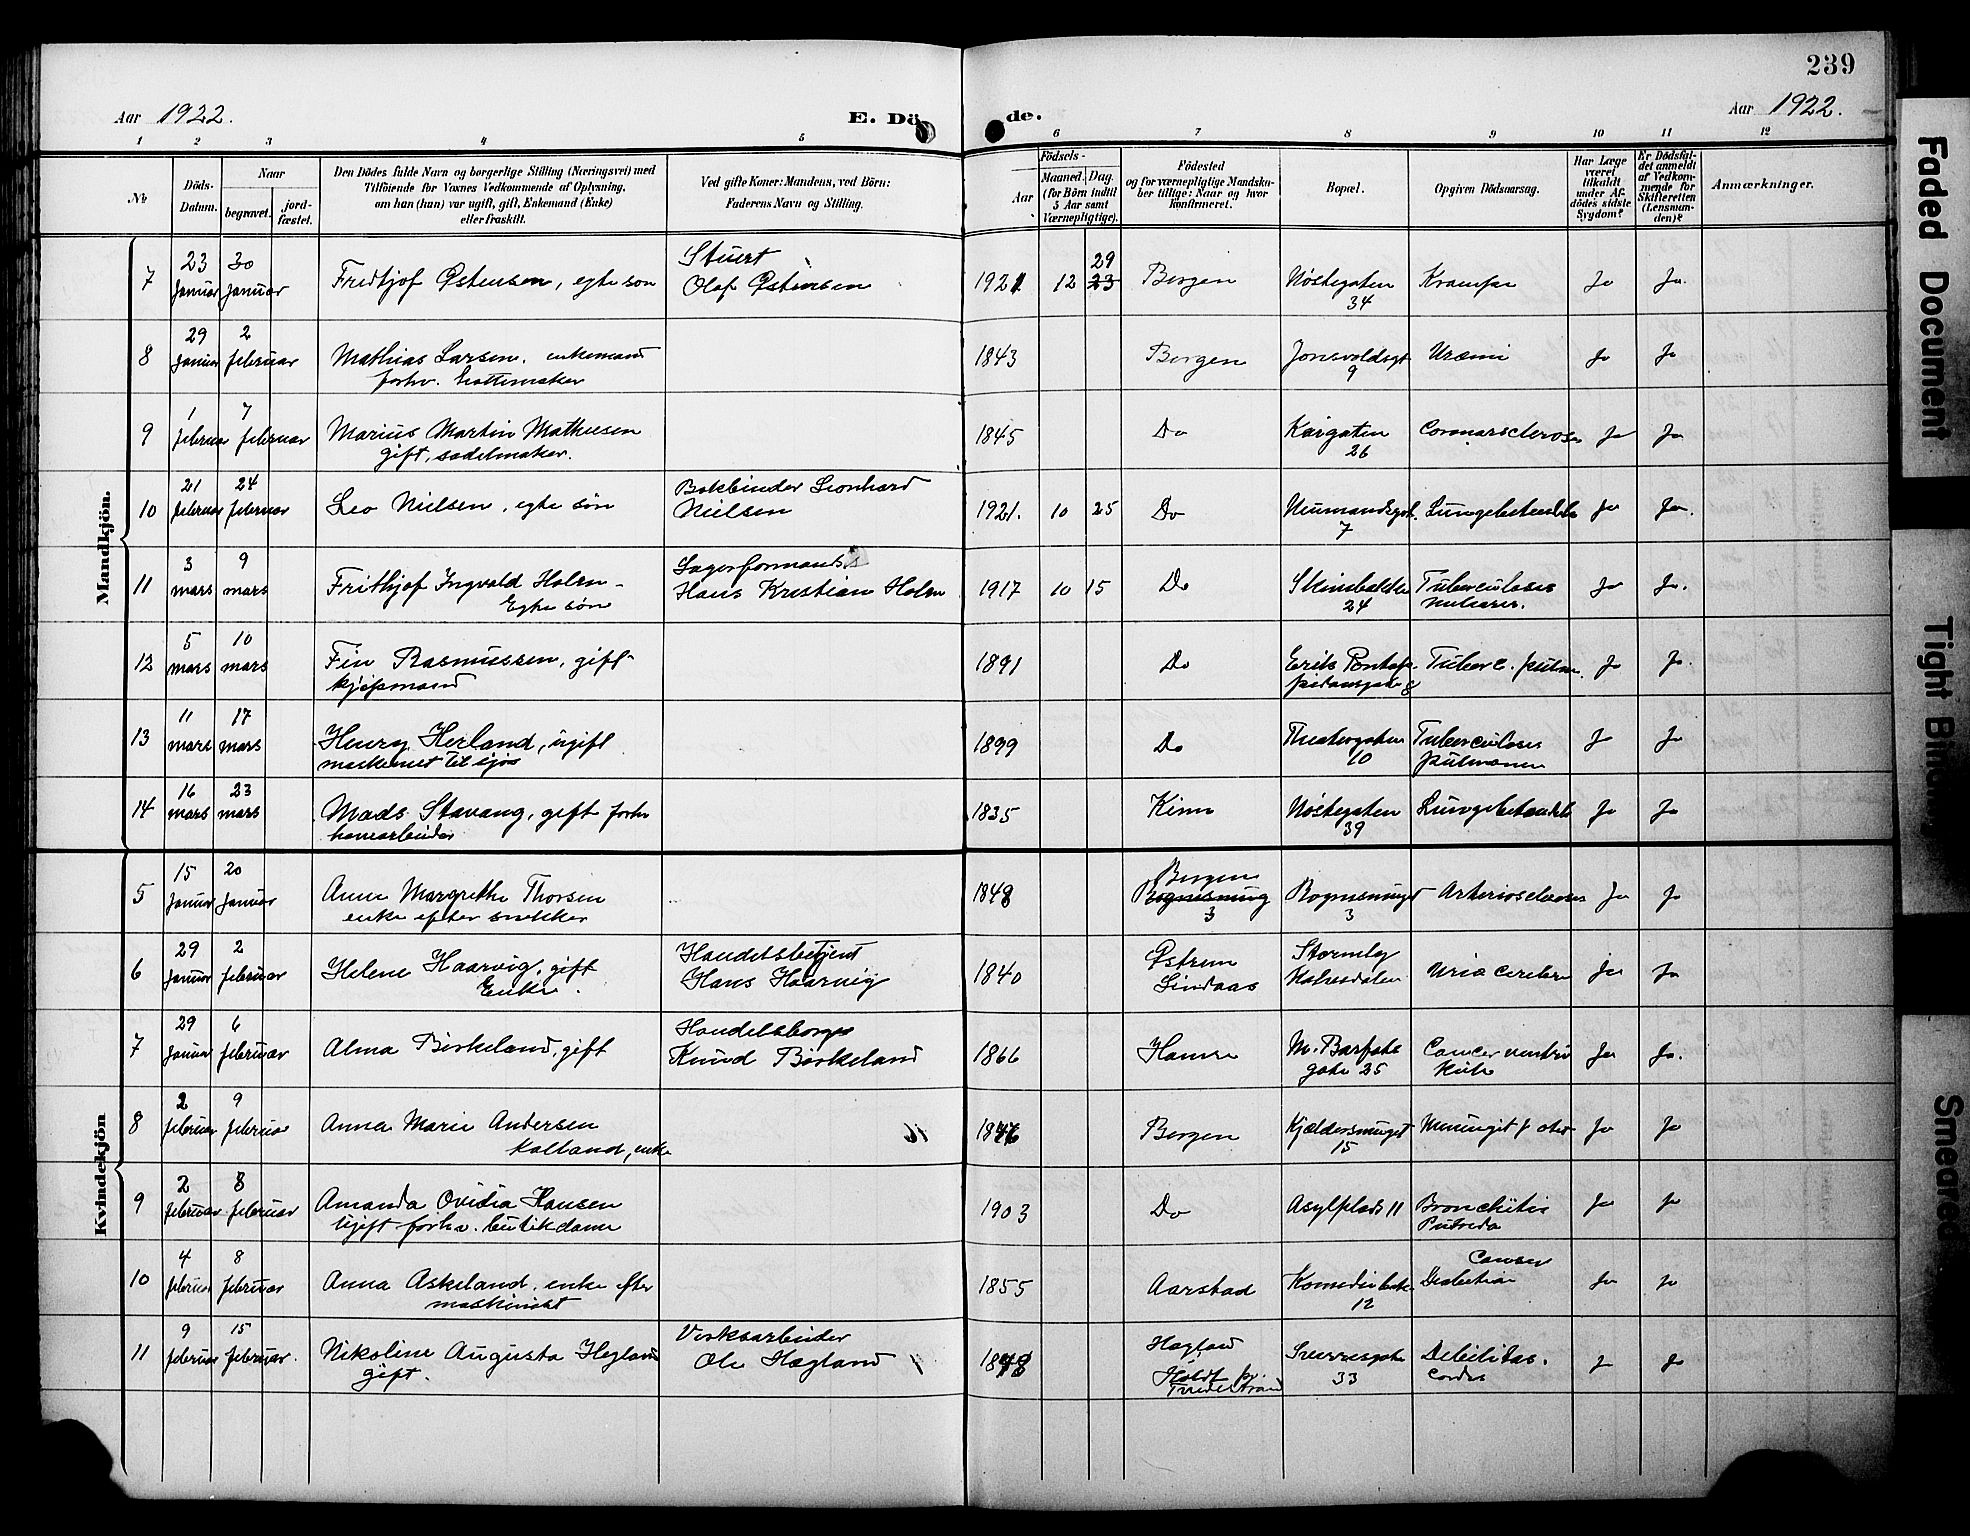 239
Aar 1922.
E. Dö
de.
Aar 1922.
1 2 3 4 5 6 7 8 9 10 11 12
№
Döds-
Datum.
Naar
begravet.
jord-
fæstet.
Den Dödes fulde Navn og borgerlige Stilling (Næringsvei) med
Tilföiende for Voxnes Vedkommende af Oplysning,
om han (hun) var ugift, gift, Enkemand (Enke)
eller fraskilt.
Ved gifte Koner: Mandens, ved Börn:
Faderens Navn og Stilling.
Födsels-
Aar
Maaned.
Dag.
(for Börn indtil
5 Aar samt
Værnepligtige).
Födested
og for værnepligtige Mandska-
ber tillige: Naar og hvor
konfirmeret.
Bopæl.
Opgiven Dödsaarsag.
Har Læge
været
tilkaldt
under Af-
dödes sidste
Sygdom?
Er Dödsfal-
det anmeldt
af Vedkom-
mende for
Skifteretten
(Lensman-
den)?
Anmærkninger.
Mandkjön.
7
23 Januar
30 Januar
Fredtjof Østensen, egte son
Stuert
Olaf Østensen
1921 12 29
23
Bergen
Nøstegaten
34
Krampe
Ja
Ja.
8
29 Januar
2 februar
Mathias Larsen. enkemand
forhv. hattemaker
1843
Bergen
Jonsvoldsgt
9
Uræmi
Ja
Ja
9
1 februar
7 februar
Marius Martin Mathiesen
gift, sadelmaker.
1845
Do
Kaigaten
26
Coronarsclerose
Ja
Ja
10
21 februar
24 februar
Leo Nielsen, egte søn
Bokbinder Leonhard
Nielsen
1921. 10 25
Do
Neumandsgt.
7
Lungebetændelse
Ja
Ja.
11
3 mars
9 mars
Frithjof Ingvald Holm-
Egte søn
Lagerformand
Hans Kristian Holm
1917 10 15
Do
24
Tuberculosis
miliaris.
Ja
Ja.
12
5 mars
10 mars
Fin Rasmussen, gift
kjøpmand
1891
Do
Erik Pontop-
pidansgate 8
Tuberc. pulm.
Ja
Ja.
13
11 mars
17 mars
Henry Herland, ugift
maskinist til sjøs
1899
Do
Theatergaten
10
Tuberculosis
pulmonum
Ja
Ja
14
16 mars
23 mars
Mads Stavang, gift forhv
havnearbeider
1835
Kinn
Nøstegaten
39
Lungebetændelse
Ja
Ja
Kvindekjön
5
15 Januar
20 Januar
Anne Margrethe Thorsen
enke efter snekker
1848
Bergen
Rognesmug
3
Rognesmuget
3
Arteriosclerosis
Ja
Ja
6
29 Januar
2 februar
Helene Haarvig, gift
Enke.
Handelsbetjent
Hans Haarvig
1840
Østrem
Lindaas
Stormeby
Kalvedalen
Ja
Ja
7
29 Januar
6 februar
Alma Birkeland, gift
Handelsborger
Knud Birkeland
1866
Hamre
M. Barfots
gate 25
Cancer ventri
kuli
Ja
Ja.
8
2 februar
9 februar
Anna Marie Andersen
Kalland, enke
1846
Bergen
Kjældersmuget
15
Ja
Ja
9
2 februar
8 februar
Amanda Ovidia Hansen
Ugift forhv. butikdame
1903
Do
Asylplads 11
Bronchitis
Putrida
Ja
Ja
10
4 februar
8 februar
Anna Askeland, enke efter
maskinist
1855
Aarstad
Komediebak.
12
Ja
Ja
11
9 februar
15 februar.
Nikoline Augusta Hegland
gift.
Verksarbeider
Ole Hægland
1848
Hægland
Holdt pr.
Tvedestrand
Sverresgate
33
Debilitas.
Cordis
Ja
Ja
Faded Document
Tight Bin
Smeared